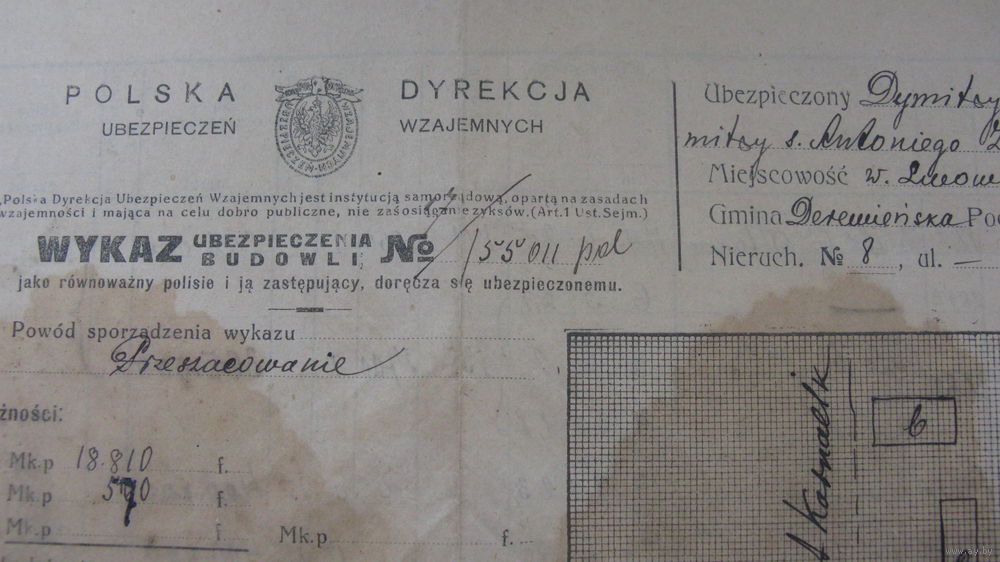 POLSKA DYREKCJA
UBEZPIECZEŃ WZAJEMNYCH
„Polska Dyrekcja Ubezpieczeń Wzajemnych jest instytucją samorządową, opartą na zasadach
wzajemności i mająca na celu dobro publiczne, nie zaś osiąganie zysków. (Art. 1 Ust. Sejm.)
WYKAZ UBEZPIECZENIA BUDOWLI №
55011 pol
jako równoważny polisie i ją zastępujący, doręcza się ubezpieczonemu.
Powód sporządzenia wykazu
Przeszacowanie
żności:
Mk.p 18.810 f.
Mk.p f.
Mk.p f.
Mk.p f.
Ubezpieczony Dymitry
mitry s. Antoniego
Miejscowość w.
Gmina Derewieńska
Nieruch. № 8, ul. —
b
www.ay.by